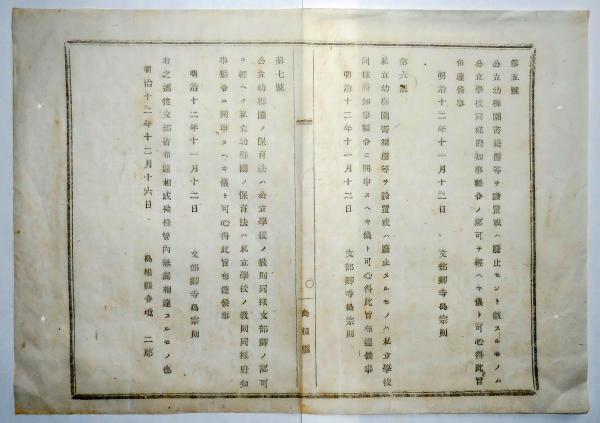 第五號
公立幼稚園書籍館等ヲ設置或ハ廢止セント欲スルモノハ
公立學校同樣府知事縣令ノ認可ヲ經ヘキ儀ト可心得此旨
布達候事
明治十二年十一月十二日 文部卿寺島宗則
第六號
私立幼稚園書籍館等ヲ設置或ハ廢止スルモノハ私立學校
同樣府知事縣令ニ開申スヘキ儀ト可心得此旨布達候事
明治十二年十一月十二日 文部卿寺島宗則
〇 島根縣
第七號
公立幼稚園ノ保育法ハ公立學校ノ敎則同樣文部卿ノ認可
ヲ經ヘク私立幼稚園ノ保育法ハ私立學校ノ敎則同樣府知
事縣令ニ開申スヘキ儀ト可心得此旨布達候事
明治十二年十一月十二日 文部卿寺島宗則
右之通從文部省布達相成候條管內無漏相達スルモノ也
明治十二年十二月十六日 島根縣令境 二郎